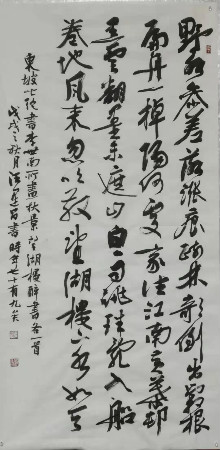 野水参差落漲痕疏林欹倒出霜根
扁舟一棹歸何處家住江南黄葉邨
黑雲翻墨未遮山白雨跳珠亂入船
卷地風來忽吹散望湖樓下水如天
東坡七絶書李世南所畫秋景望湖樓醉書各一首
戊戌之秋月書時年七十有九矣